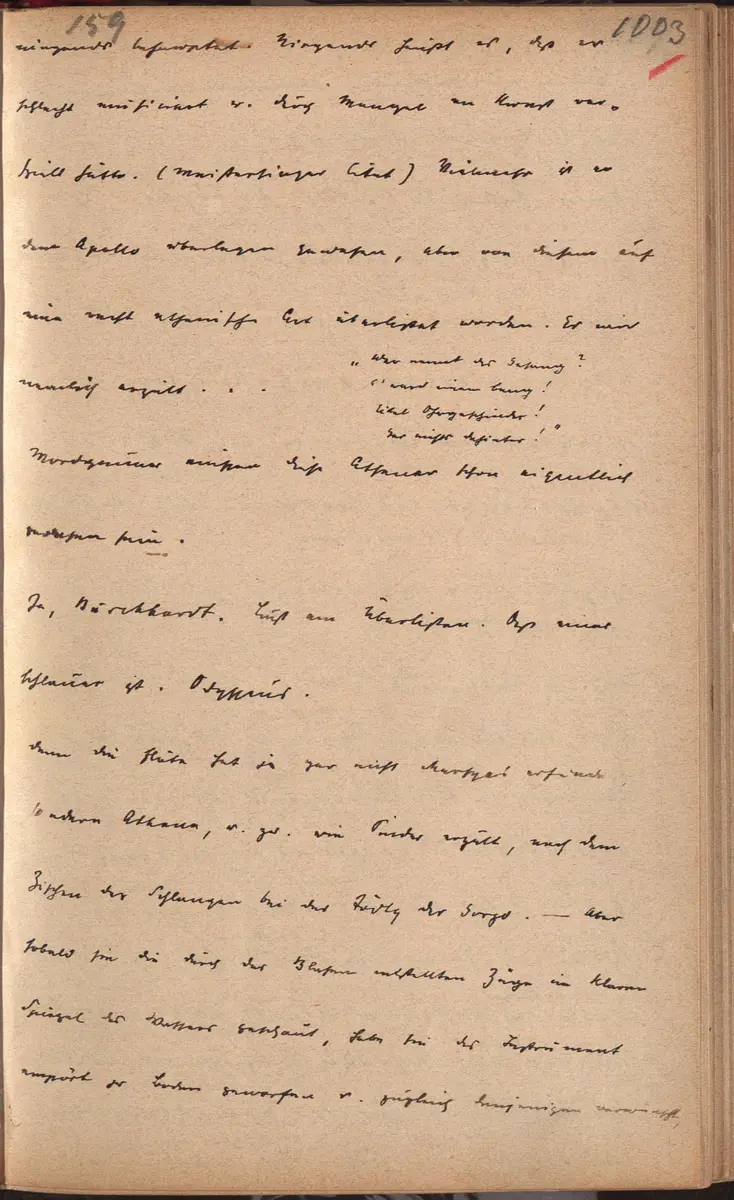 159
1003
nirgends behauptet. Nirgends heißt es, daß er
schlecht musiciert u. durch Mangel an Kunst ver-
spielt hätte. (Meistersinger Citat) Vielmehr ist er
dem Apollo überlegen gewesen, aber von diesem auf
eine recht athenische Art überlistet worden. Es wird
„Wer nennt das Gesang?
nemlich erzält . . .
's ward einem bang!
Eitel Ohrgeschinder!
Gar nichts dahinter!"
Mordsgauner müssen diese Athener schon eigentlich
gewesen sein.
Ja, Burckhardt. Lust am Überlisten. Daß einer
schlauer ist. Odysseus.
denn die Flöte hat ja gar nicht Marsyas erfunden,
sondern Athena, u. zw. wie Pindar erzält, nach dem
Zischen der Schlangen bei der Tödtg der Gorgo. — Aber
sobald sie die durch das Blasen entstellten Züge im klaren
Spiegel des Wassers geschaut, habe sie das Instrument
empört zu Boden geworfen u. zugleich denjenigen verwünscht,